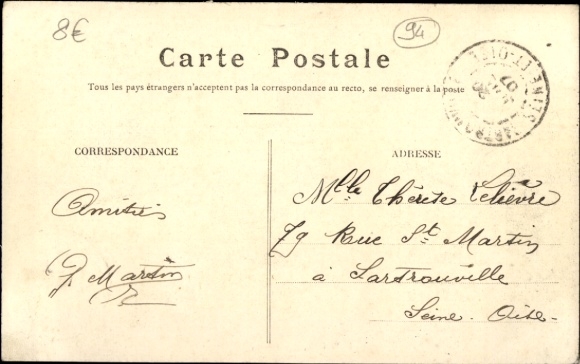 8€
94
Carte Postale
Tous les pays étrangers n'acceptent pas la correspondance au recto, se renseigner à la poste
CORRESPONDANCE
ADRESSE
Amitiés
Martin
Mlle Thérèse Lelièvre
79 Rue St Martin
à Sartrouville
Seine. Oise-